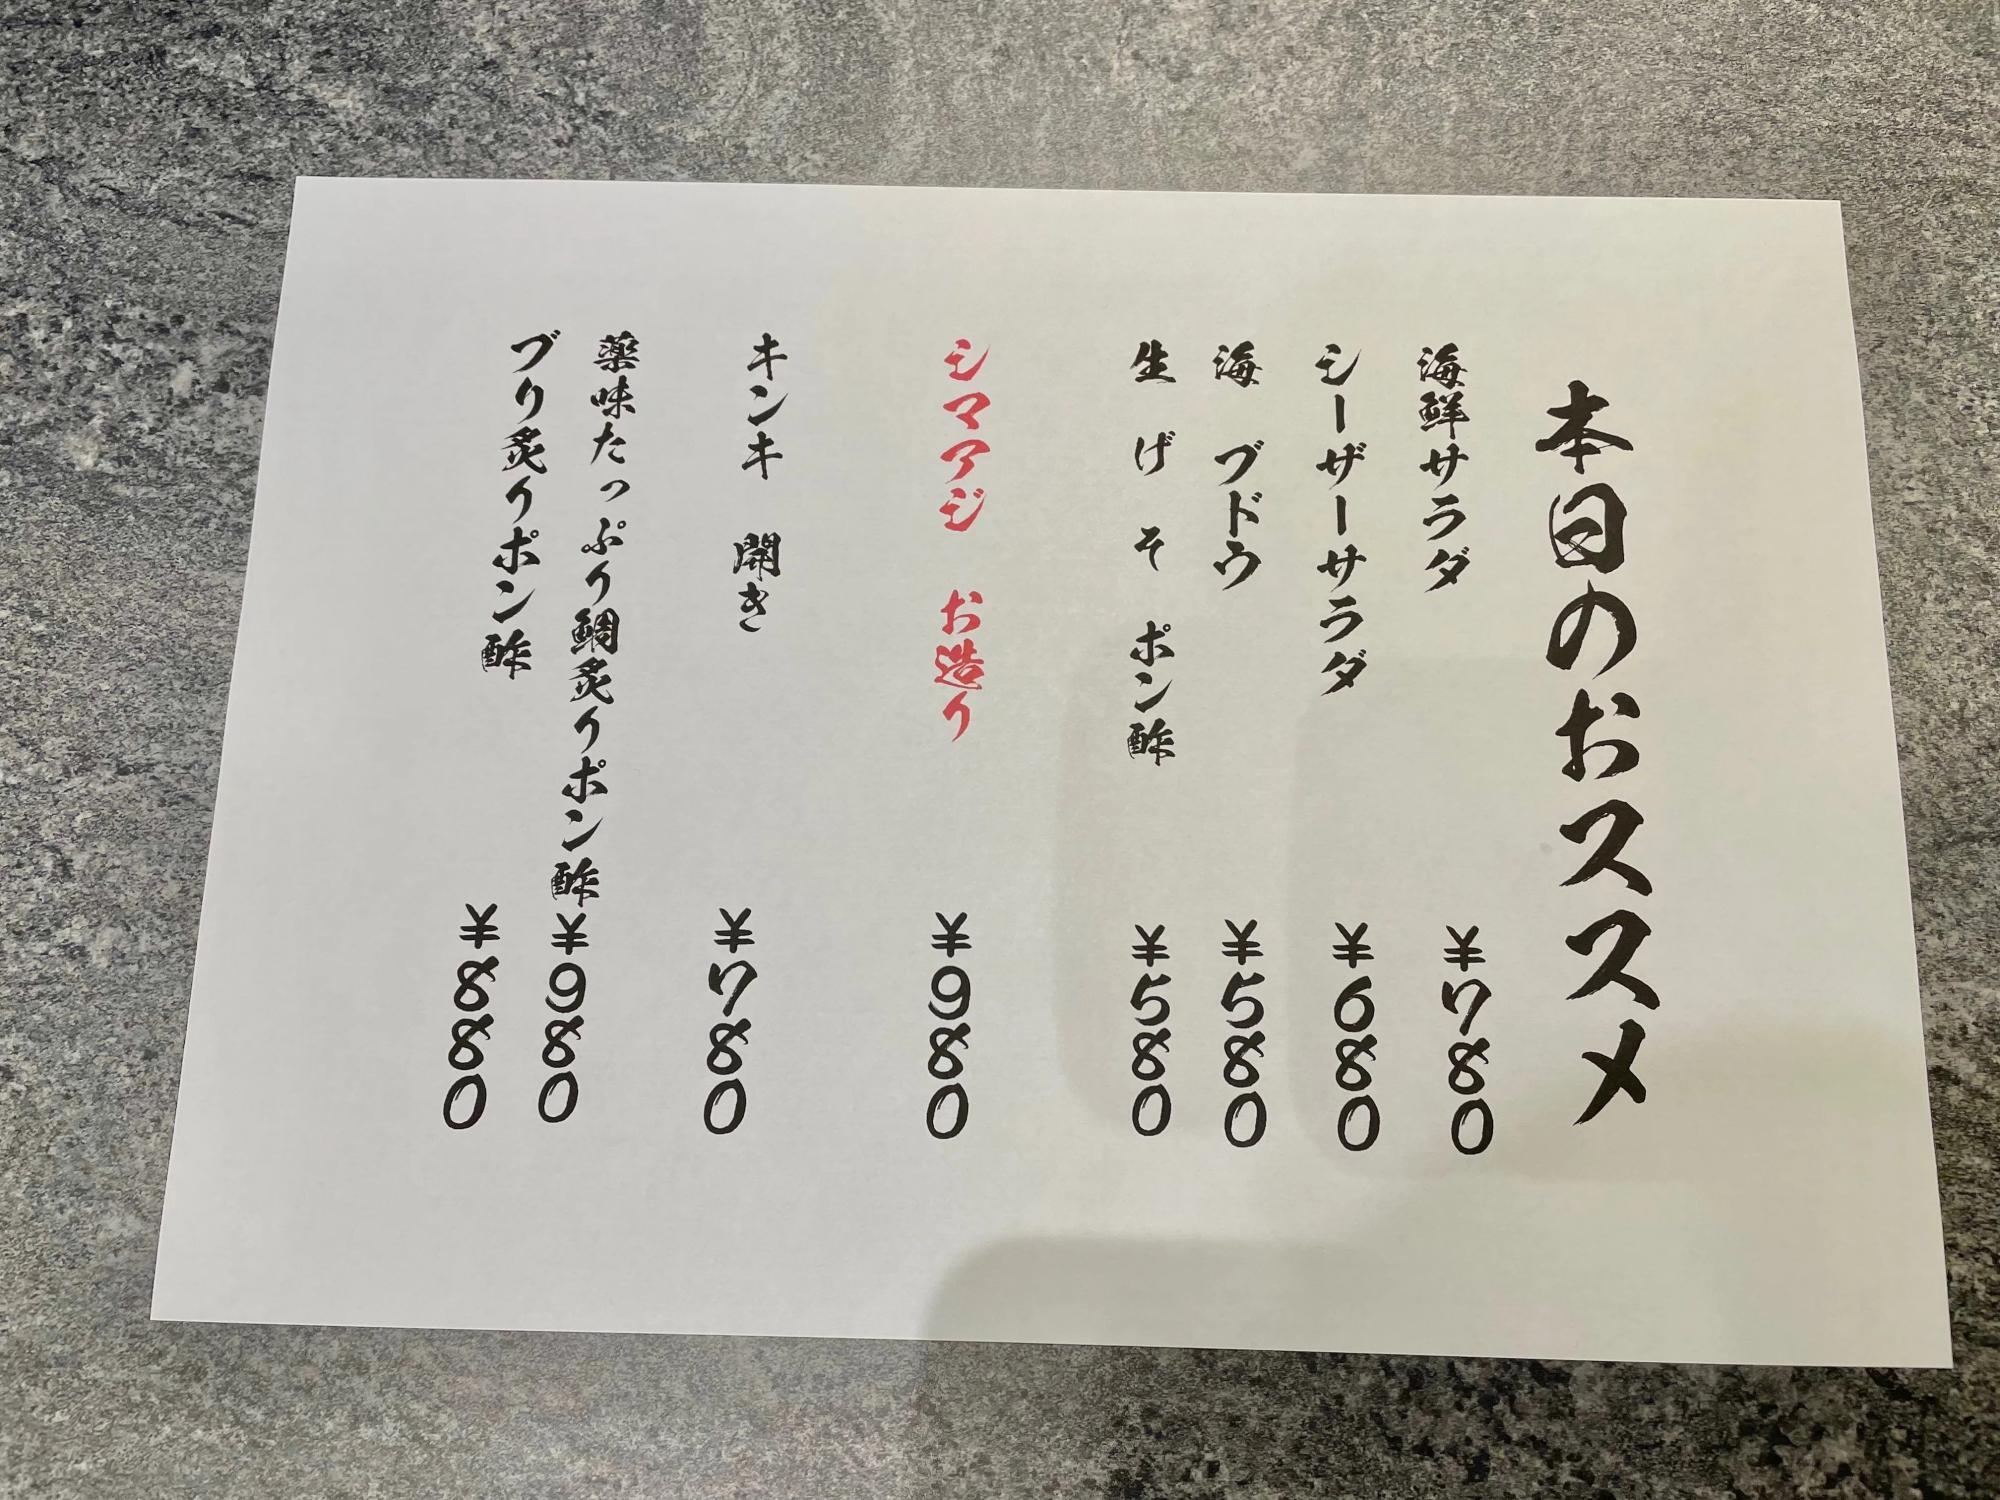 本日のおススメ
海鮮サラダ ¥780
シーザーサラダ ¥680
海 ブドウ ¥580
生 げ そ ポン酢 ¥580
シマアジ お造り ¥980
キンキ 開き ¥780
薬味たっぷり鯛炙りポン酢 ¥980
ブリ炙りポン酢 ¥880